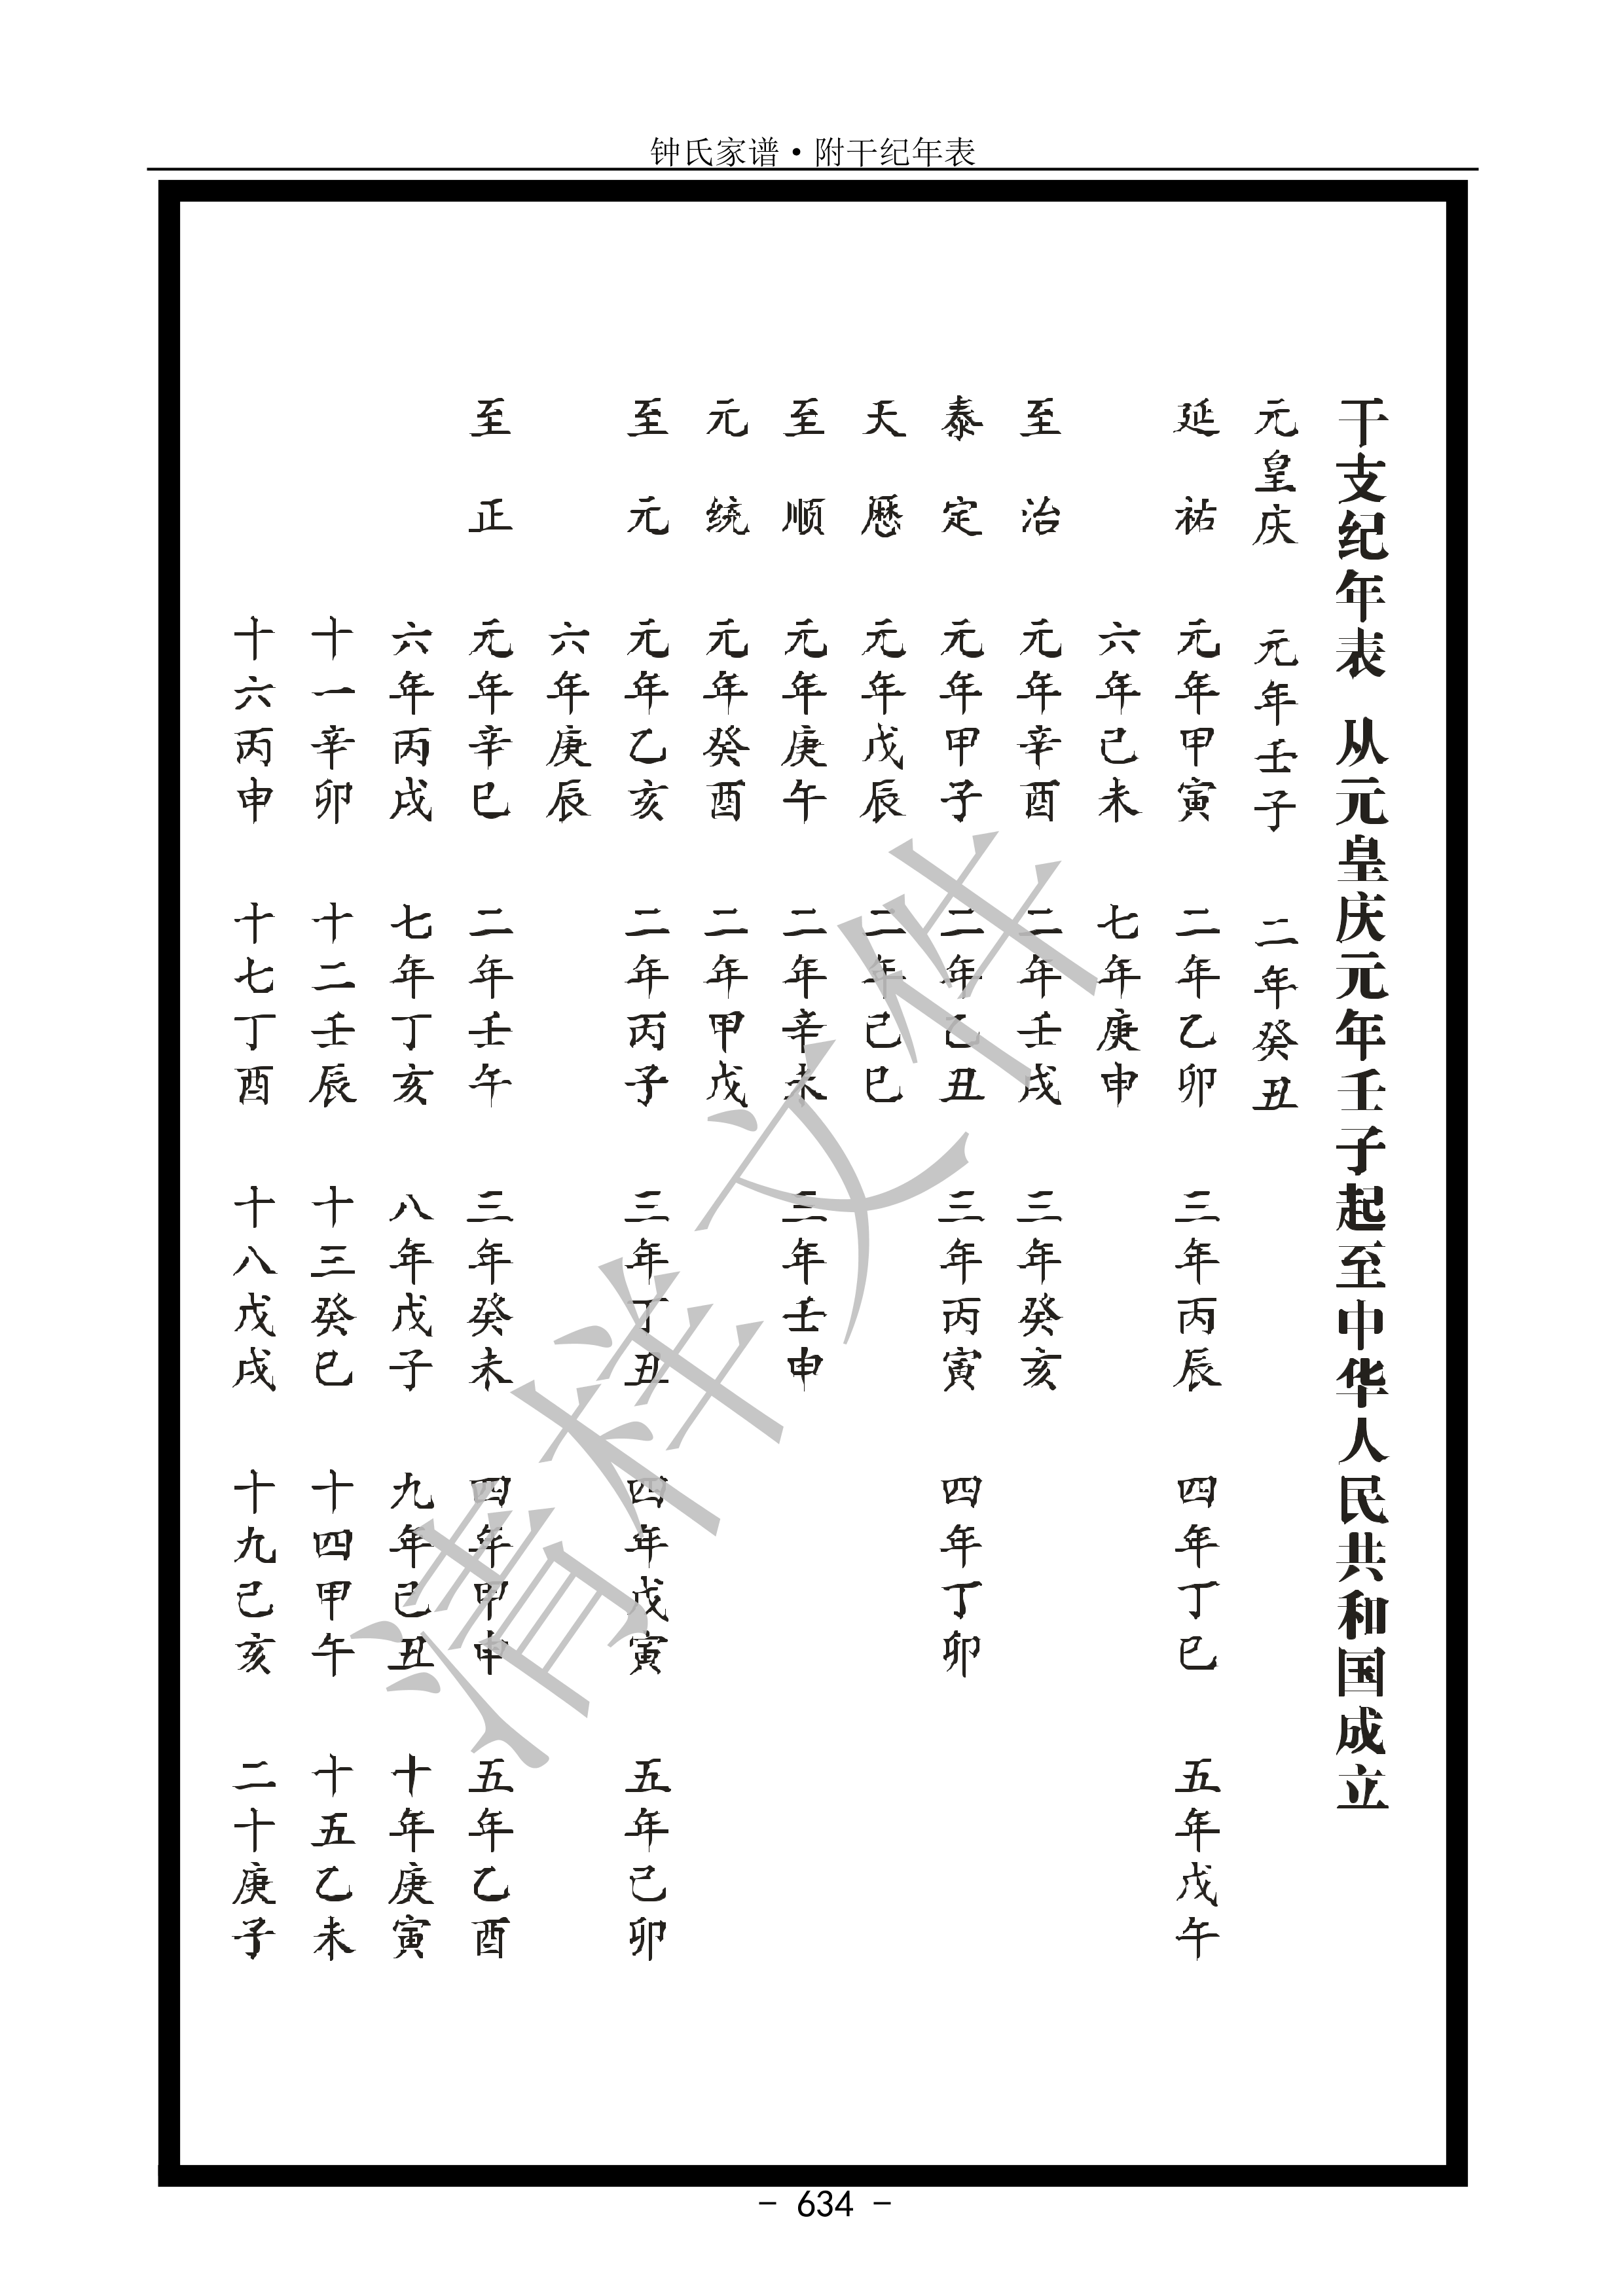 钟氏家谱·附干纪年表
干支纪年表 从元皇庆元年壬子起至中华人民共和国成立
元皇庆 元年壬子 二年癸丑
延祐 元年甲寅 二年乙卯 三年丙辰 四年丁巳 五年戊午
六年己未 七年庚申
至治 元年辛酉 二年壬戌 三年癸亥
泰定 元年甲子 二年乙丑 三年丙寅 四年丁卯
天歷 元年戊辰 二年己巳
至顺 元年庚午 二年辛未 三年壬申
元统 元年癸酉 二年甲戊
至元 元年乙亥 二年丙子 三年丁丑 四年戊寅 五年己卯
六年庚辰
至正 元年辛巳 二年壬午 三年癸未 四年甲申 五年乙酉
六年丙戌 七年丁亥 八年戊子 九年己丑 十年庚寅
十一辛卯 十二壬辰 十三癸巳 十四甲午 十五乙未
十六丙申 十七丁酉 十八戊戌 十九己亥 二十庚子
清样文件
- 634 -